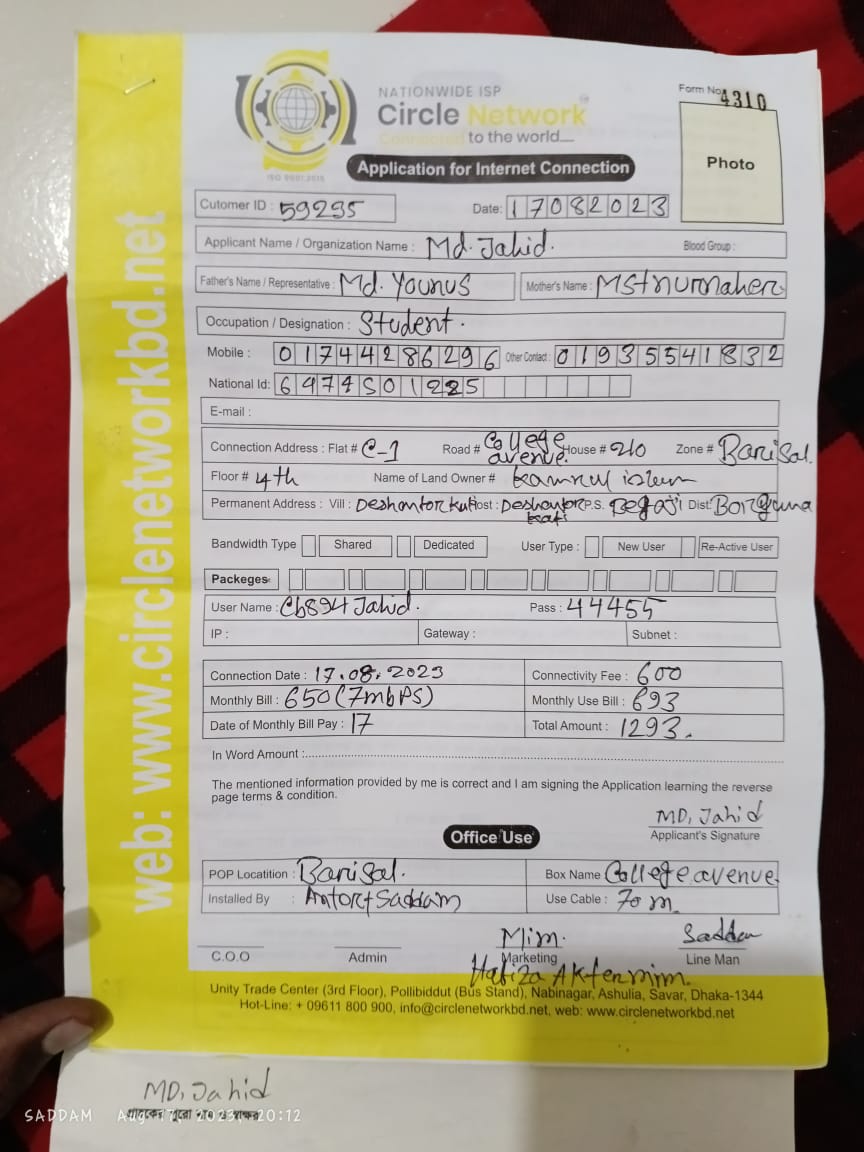 NATIONWIDE ISP
Circle Network
Connected to the world....
ISO 9001:2015
Form No 4310
Photo
Application for Internet Connection
Cutomer ID : 59295
Date: 17082023
Applicant Name / Organization Name : Md. Jahid. Blood Group :
Father's Name / Representative : Md. Younus Mother's Name : MSt nurnaher
Occupation / Designation : Student.
Mobile : 01744286296 Other Contact : 01935541832
National Id: 6474501225
E-mail :
Connection Address : Flat # C-1 Road # College avenue. House # 210 Zone # Barisal.
Floor # 4th Name of Land Owner # kamrul islam
Permanent Address : Vill : Deshantorkati Post : Deshantor kati P.S. Dist: Borguna
Bandwidth Type Shared Dedicated User Type : New User Re-Active User
Packeges
User Name : Cb894 Jahid. Pass : 44455
IP : Gateway : Subnet :
Connection Date : 17.08.2023 Connectivity Fee : 600
Monthly Bill : 650 (7mbps) Monthly Use Bill : 693
Date of Monthly Bill Pay : 17 Total Amount : 1293.
In Word Amount :
The mentioned information provided by me is correct and I am signing the Application learning the reverse
page terms & condition.
MD, Jahid
Applicant's Signature
Office Use
POP Locatition : Barisal. Box Name College avenue
Installed By : Antor + Saddam Use Cable : 70 m
Mim. Saddam
C.O.O Admin Marketing Line Man
Hafiza Akter mim.
Unity Trade Center (3rd Floor), Pollibiddut (Bus Stand), Nabinagar, Ashulia, Savar, Dhaka-1344
Hot-Line: + 09611 800 900, info@circlenetworkbd.net, web: www.circlenetworkbd.net
web: www.circlenetworkbd.net
MD, Jahid
SADDAM Aug 17, 2023, 20:12